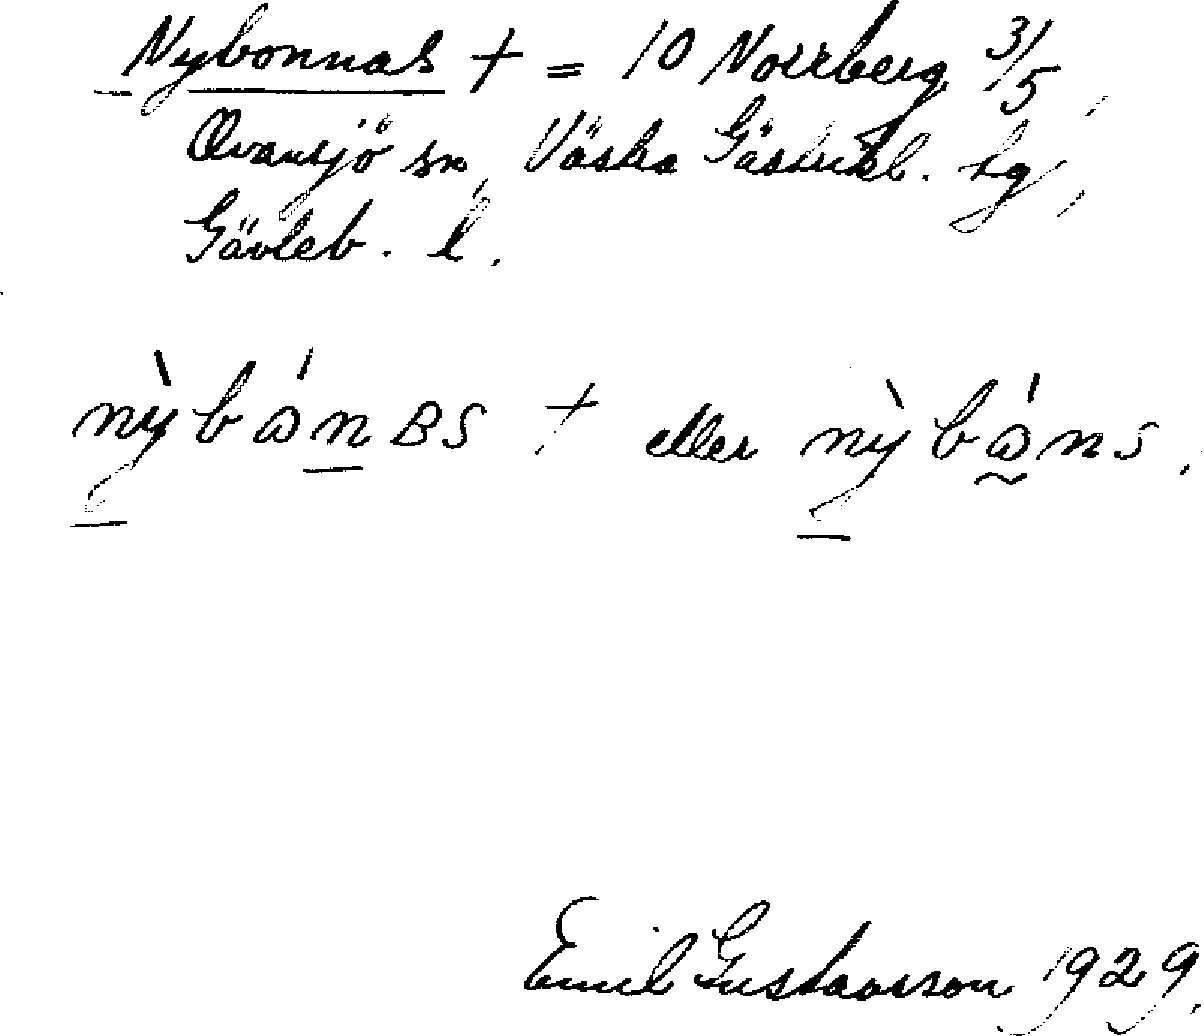 Nybonnas + = 10 Norrberg 3/5,
Ovansjö sn, Västra Gästrikl. tg,
Gävleb. l.
nỳbónBS + eller nỳbóns.
Emil Gustavsson 1929.